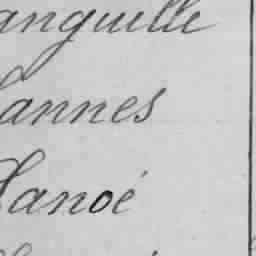 anguille
annes
Lanoé